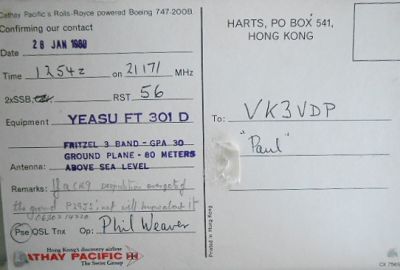 Cathay Pacific's Rolls-Royce powered Boeing 747-200B.
Confirming our contact
Date 28 JAN 1980
Time 1254z on 21171 MHz
2xSSB, RST 56
Equipment YEASU FT 301 D
FRITZEL 3 BAND - GPA 30
GROUND PLANE - 80 METERS
Antenna: ABOVE SEA LEVEL
Remarks: If a CR9 expedition
the ground P29JS' net will know about it
Pse QSL Tnx Op: Phil Weaver
Hong Kong's discovery airline
CATHAY PACIFIC
The Swire Group
HARTS, PO BOX 541,
HONG KONG
To: VK3VDP
"Paul"
Printed in Hong Kong